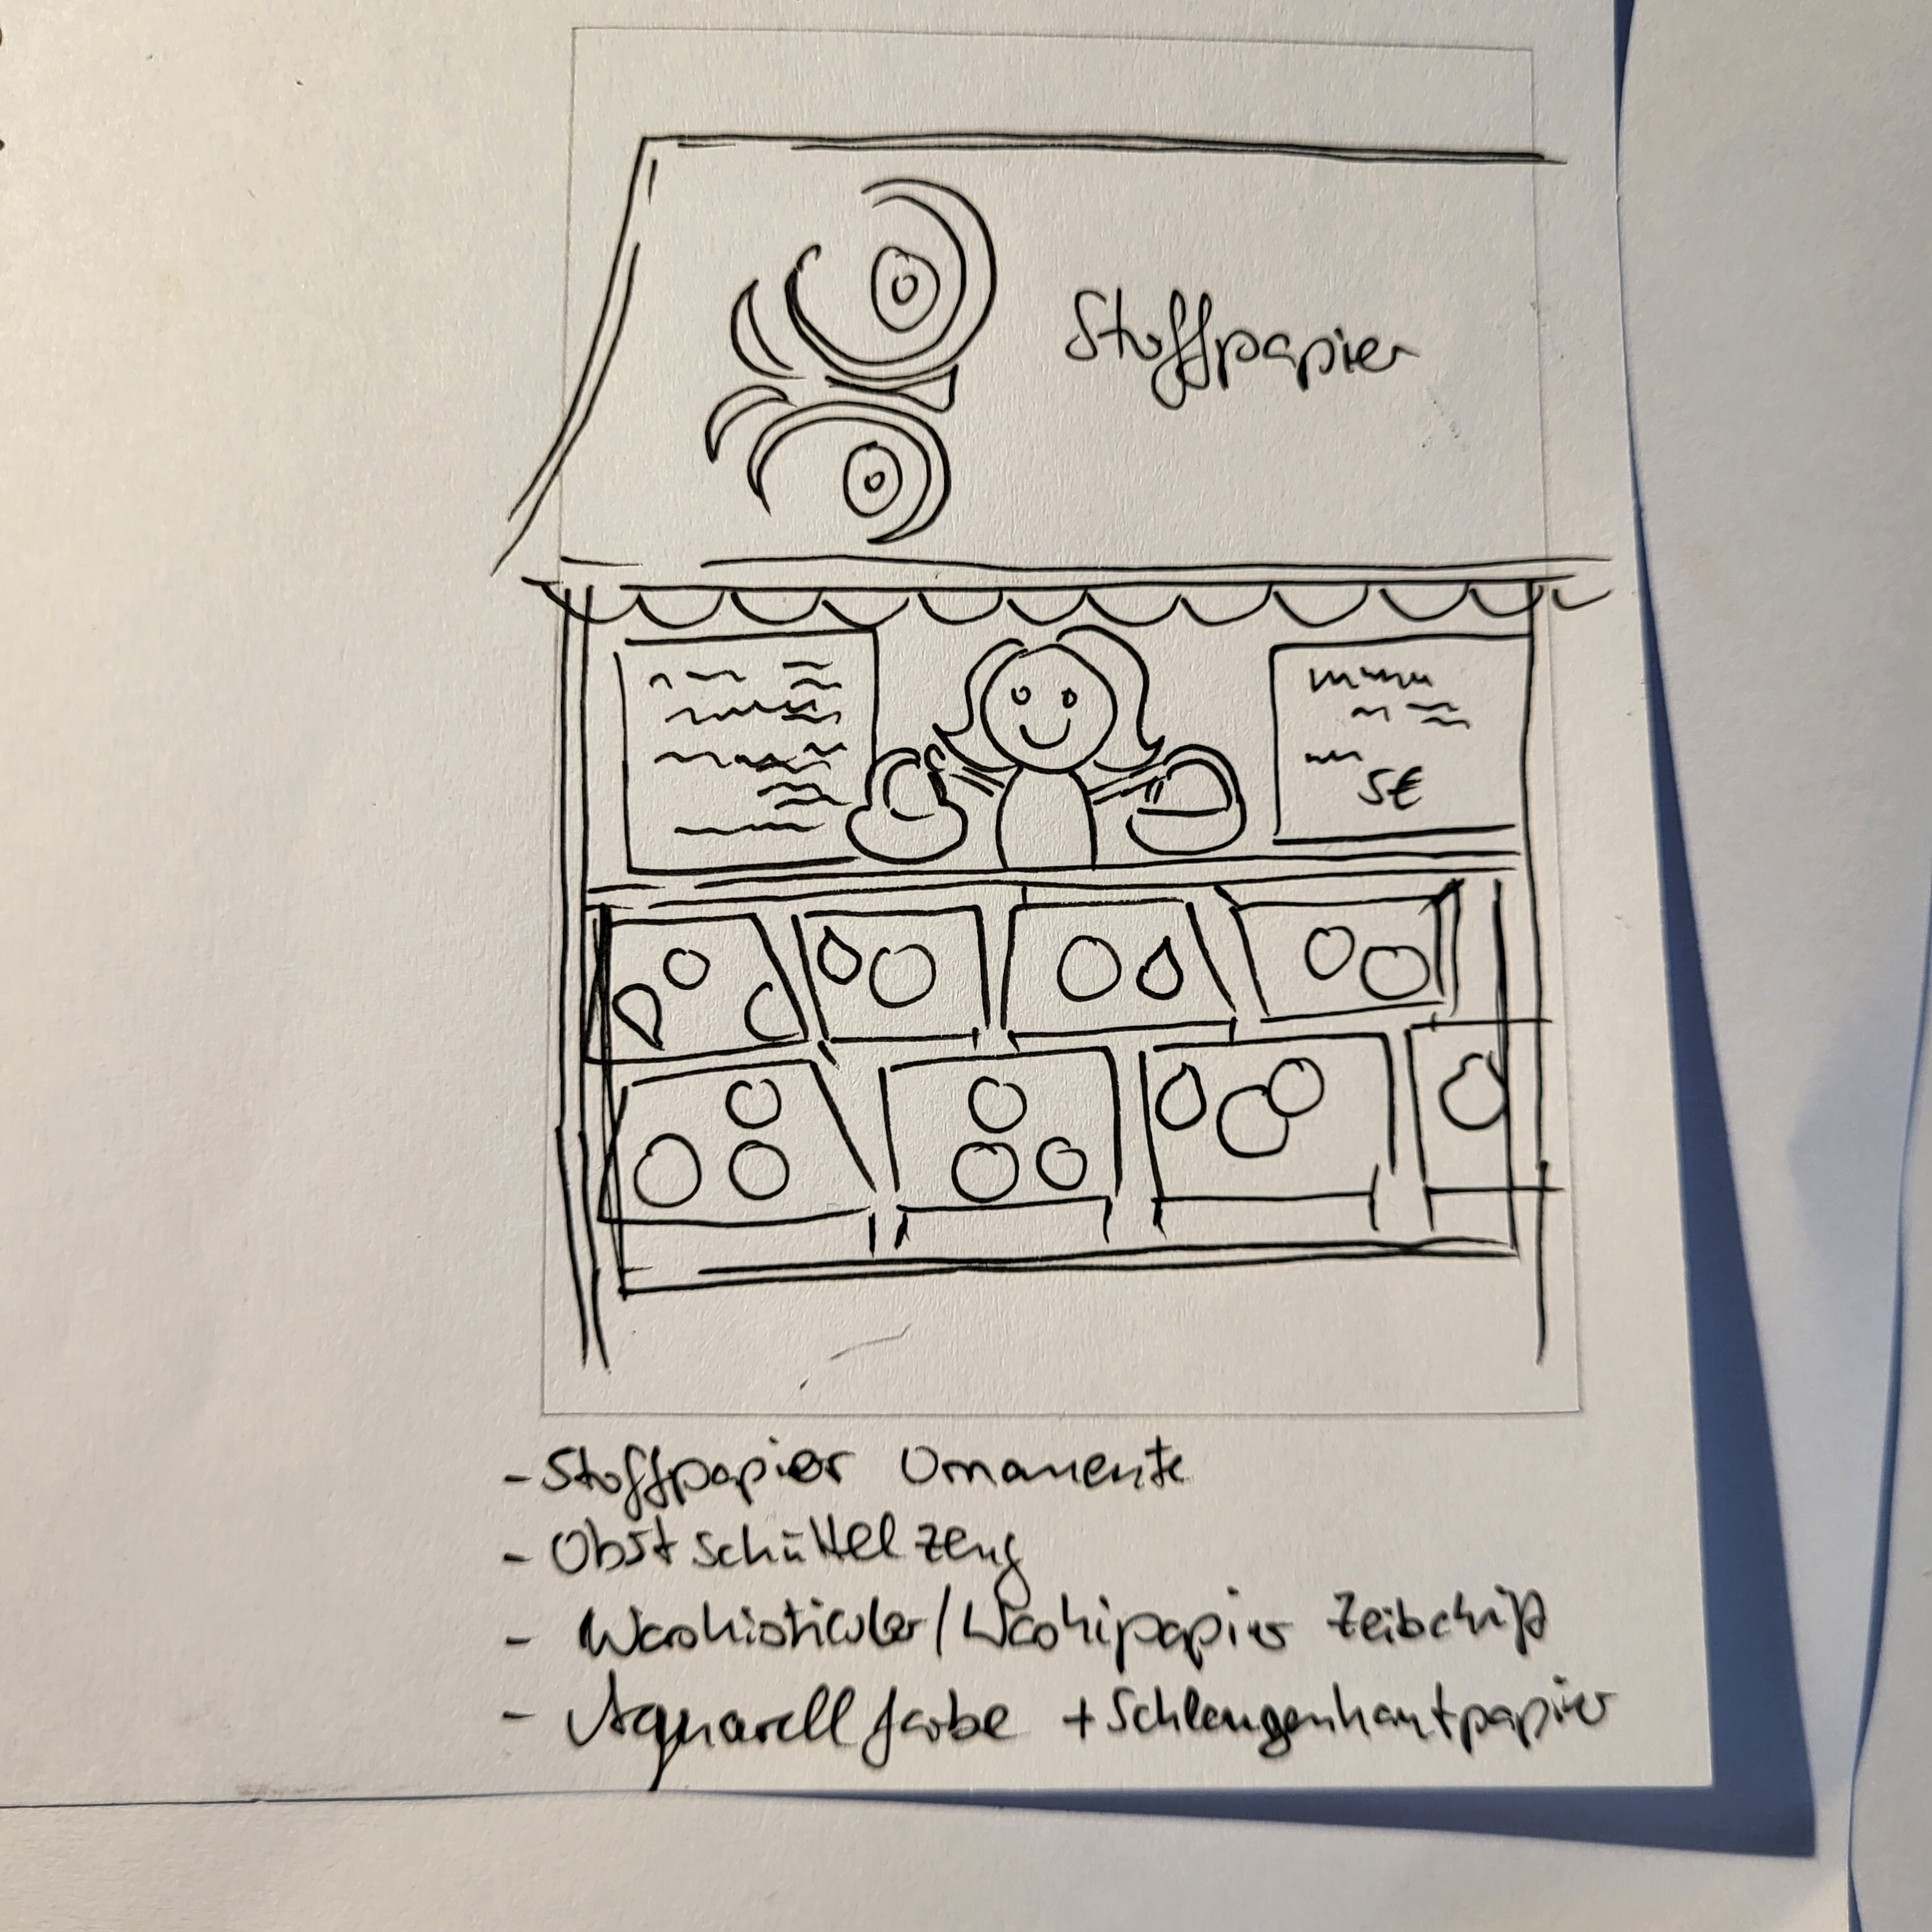 Stoffpapier
5€
- Stoffpapier Ornamente
- Obst schüttelzeug
- Washisticker/Washipapier Zeitschrift
- Aquarellfarbe + Schlangenhautpapier